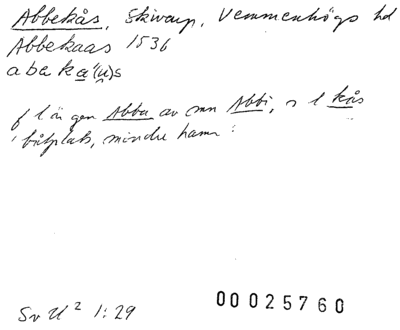 Abbekås, Skivarp, Vemmenhögs hd
Abbekaas 1536
abeka'(u)s
f l är gen Abba av mn Abbi, s l kås
'båtplats, mindre hamn'.
Sv U² 1:29
00025760